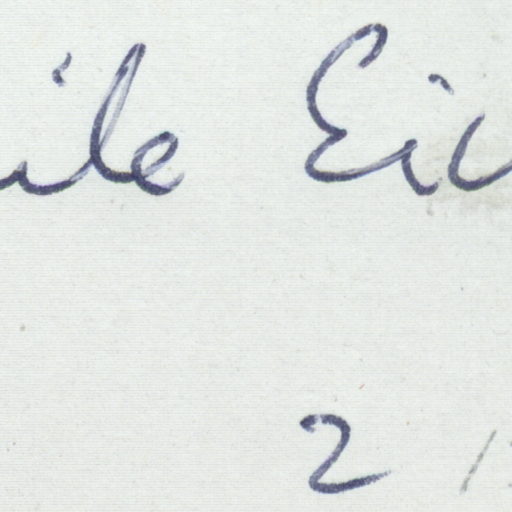 ile Ei
2 /